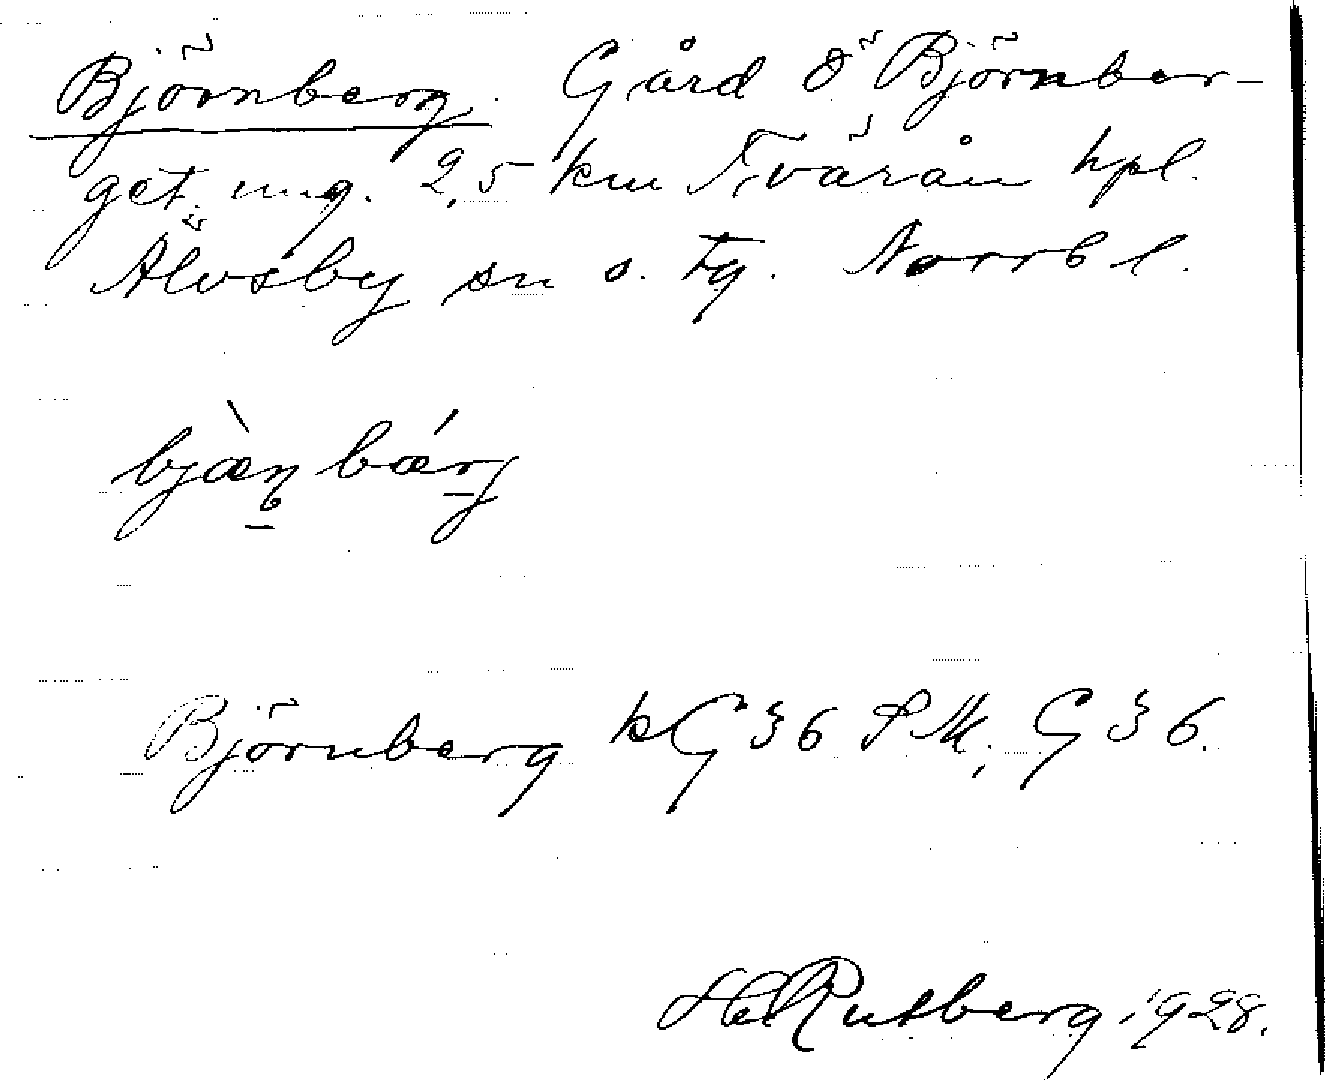 Björnberg. Gård Ö Björnber-
get ung. 2,5 km Tvärån hpl.
Älvsby sn o. tg. Norrb l.
bjæ̀n bærj
Björnberg kG § 6 SM, G § 6.
Hl Rutberg 1928.